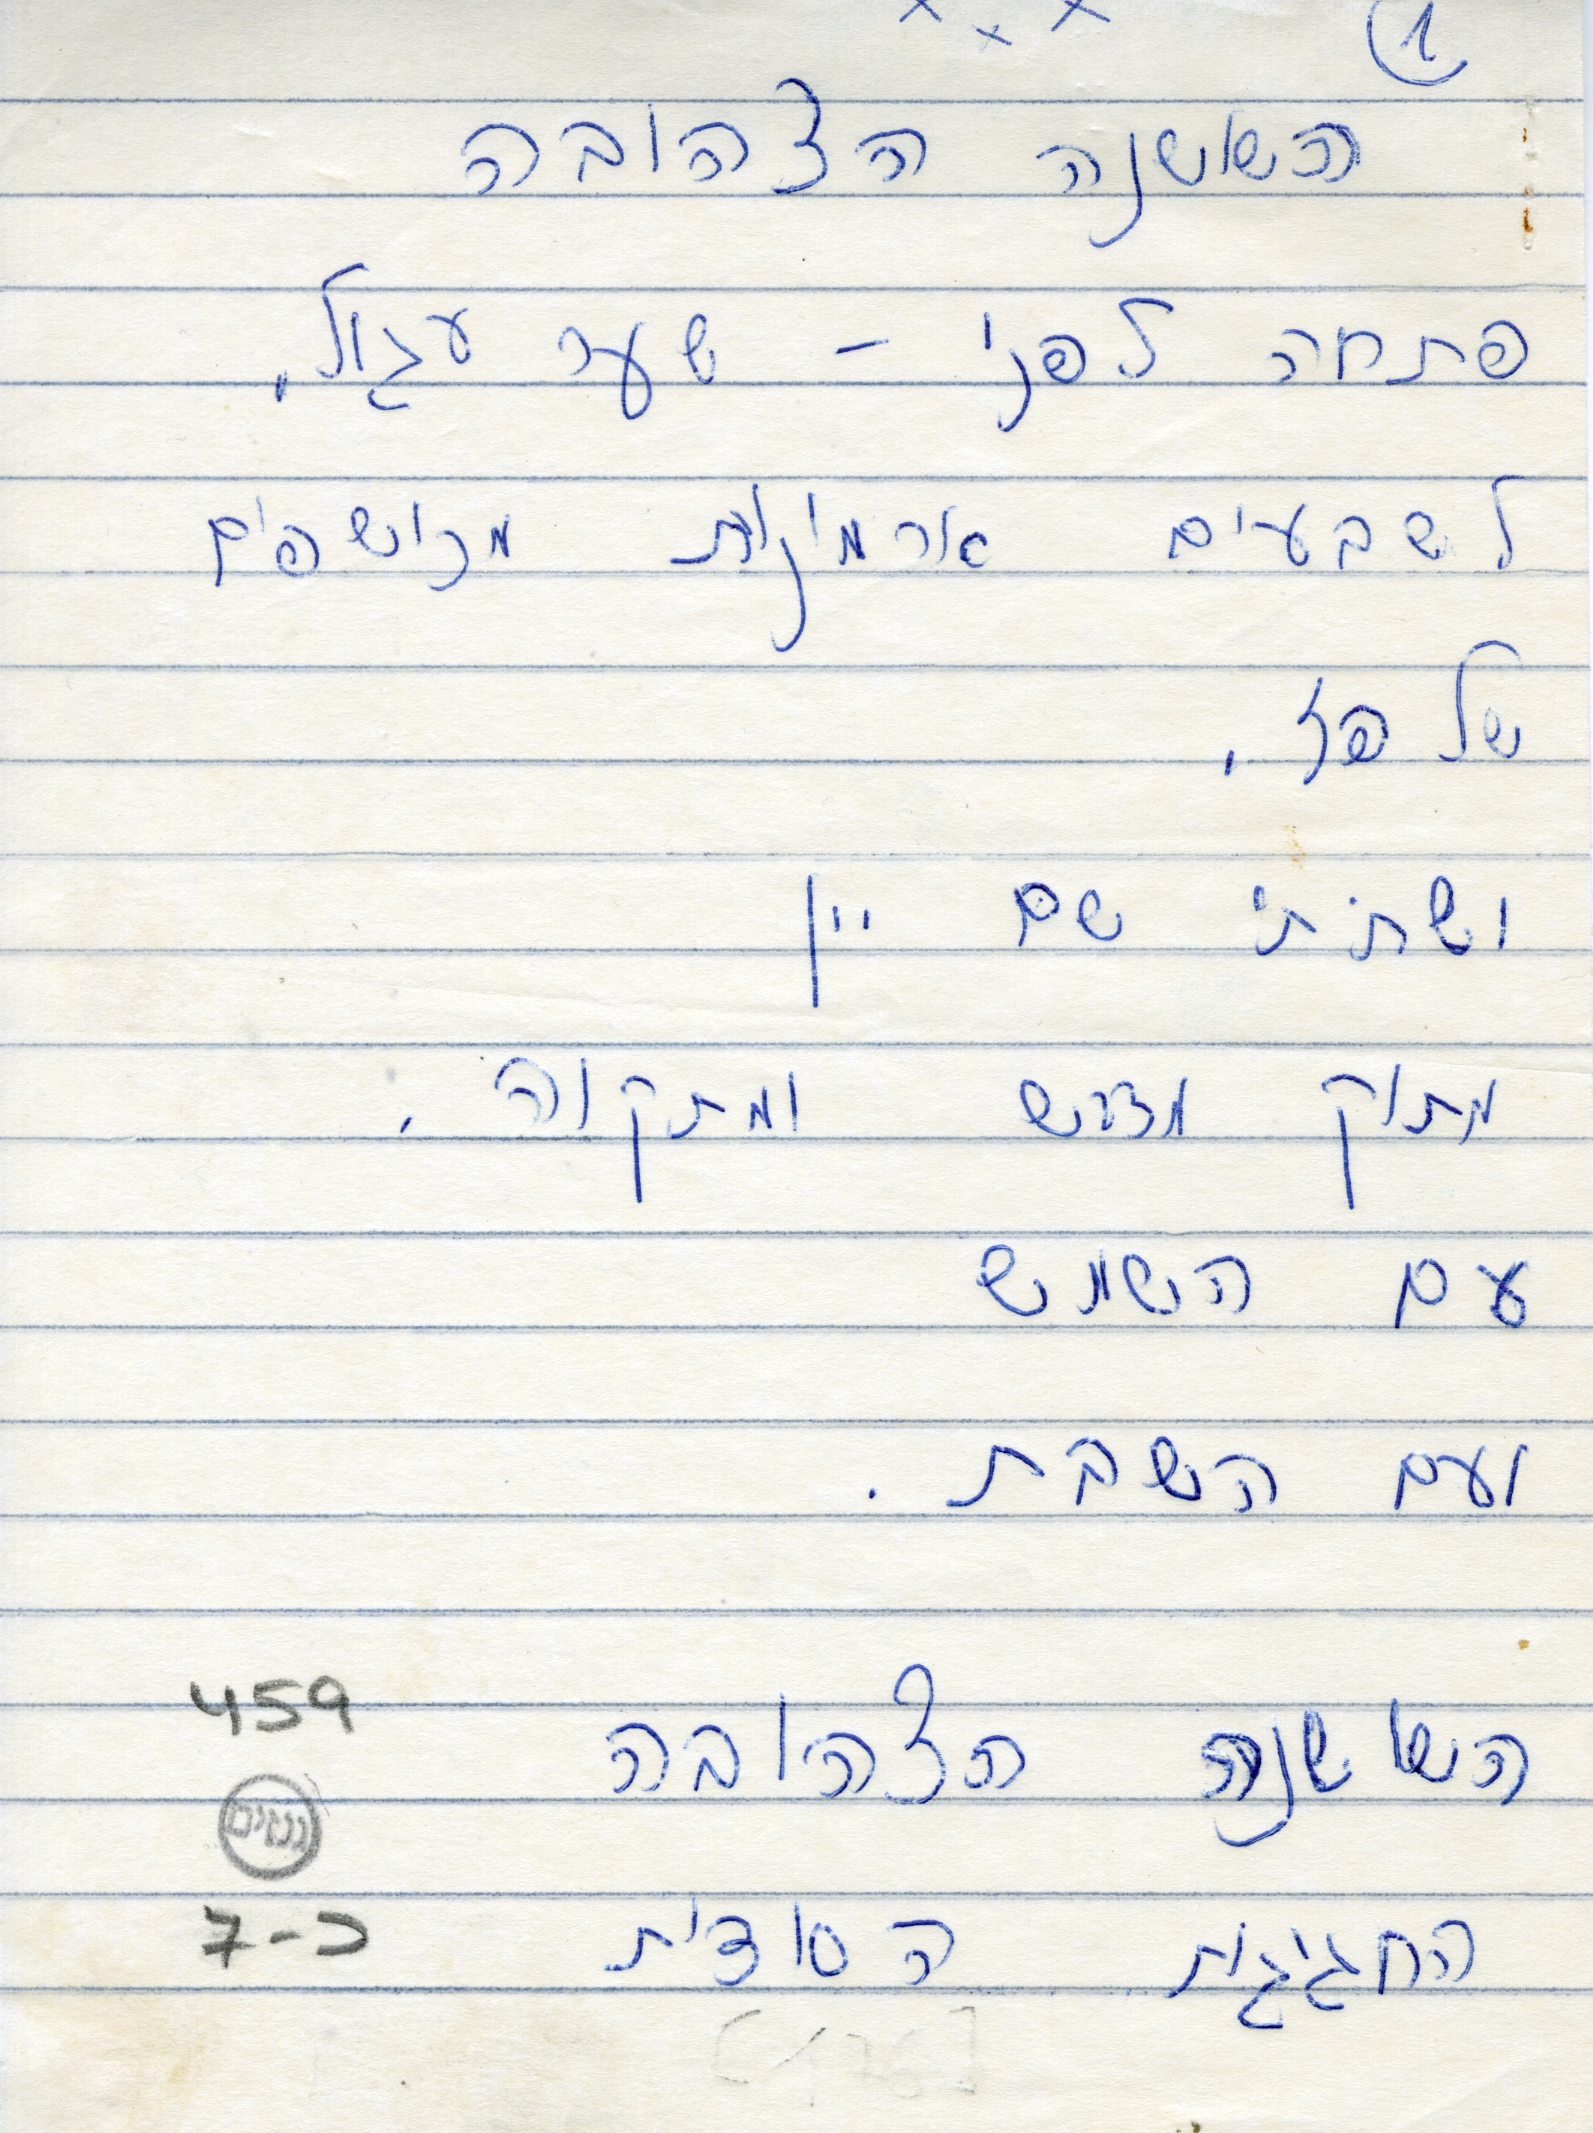 1
x x x
השושנה הצהובה
פתחה לפני – שער עגול,
לשבעים ארמונות מכושפים
של פז,
ושתיתי שם יין
מתוק מדבש ומתקוה,
עם השמש
ועם השבת.
השושנה הצהובה
459
גנזים
החגיגית הסודית
כ-7